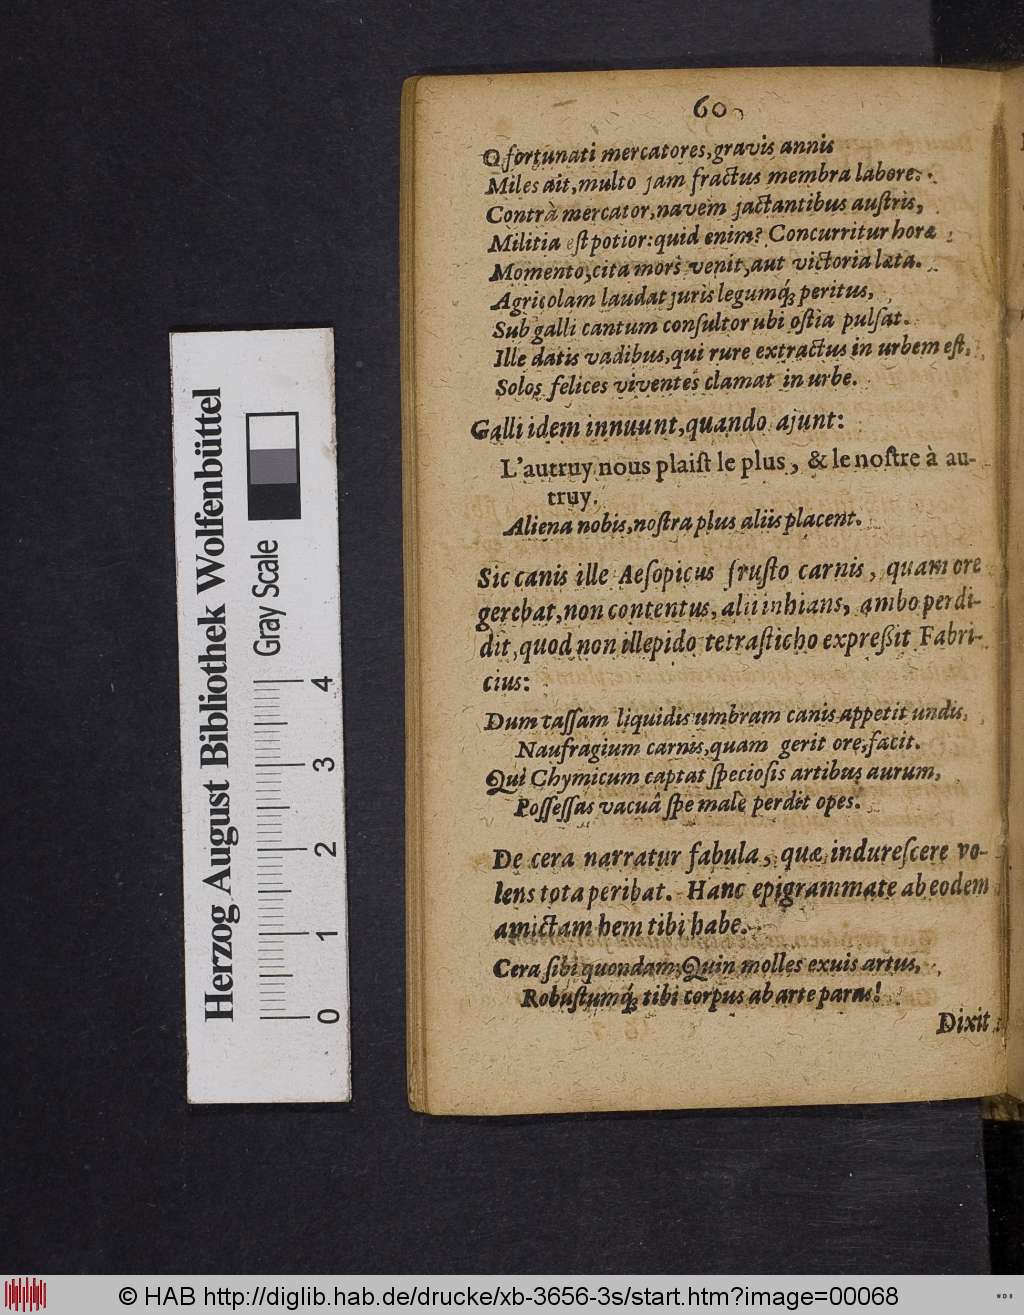 60
O fortunati mercatores, gravis annis
Miles ait, multo jam fractus membra labore.
Contrà mercator, navem jactantibus auſtris,
Militia eſt potior: quid enim? Concurritur horæ
Momento, cita mors venit, aut victoria læta.
Agricolam laudat juris legumq́; peritus,
Sub galli cantum conſultor ubi oſtia pulſat.
Ille datis vadibus, qui rure extractus in urbem eſt,
Solos felices viventes clamat in urbe.
Galli idem innuunt, quando ajunt:
L'autruy nous plaiſt le plus, & le noſtre à au-
truy.
Aliena nobis, noſtra plus aliis placent.
Sic canis ille Aeſopicus fruſto carnis, quam ore
gerebat, non contentus, alii inhians, ambo perdi-
dit, quod non illepido tetraſticho expreßit Fabri-
cius:
Dum caſſam liquidis umbram canis appetit undis,
Naufragium carnis, quam gerit ore, facit.
Qui Chymicum captat ſpecioſis artibus aurum,
Poſſeſſas vacuâ ſpe malè perdit opes.
De cera narratur fabula, quæ indureſcere vo-
lens tota peribat. Hanc epigrammate ab eodem
amictam hem tibi habe.
Cera ſibi quondam; Quin molles exuis artus,
Robuſtumq́; tibi corpus ab arte paras!
Dixit
Herzog August Bibliothek Wolfenbüttel
Gray Scale
0 1 2 3 4
© HAB http://diglib.hab.de/drucke/xb-3656-3s/start.htm?image=00068